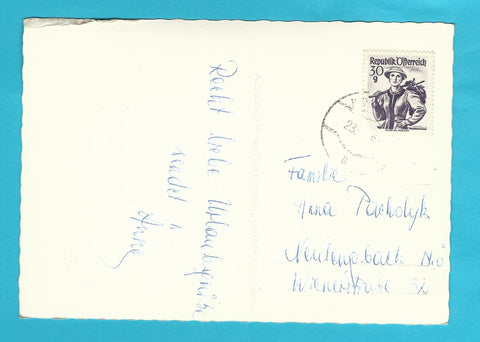 Recht liebe Urlaubsgrüße
sendet
Anni
Republik Österreich
30
g
23.
Familie
Anna
Neulengbach NÖ
Wienerstraße 32